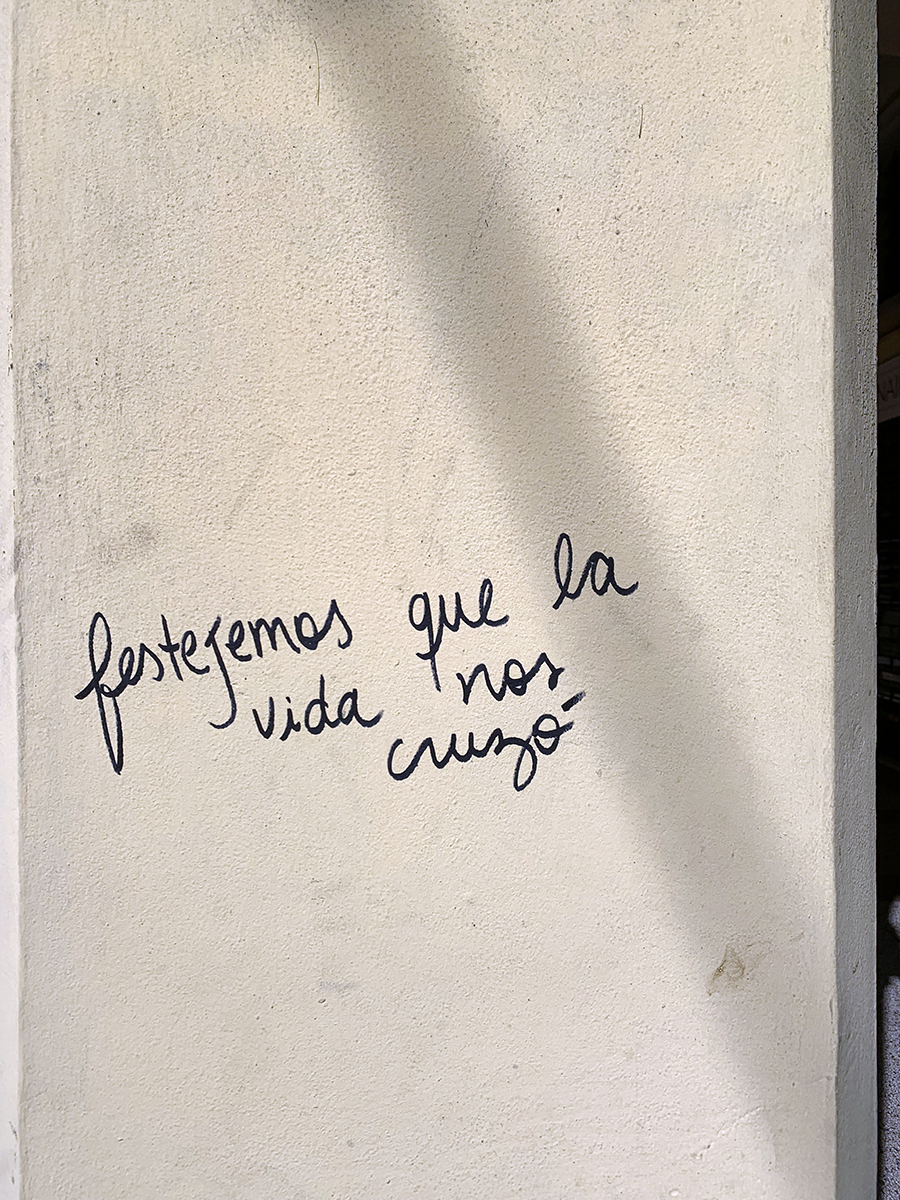 festejemos que la
vida nos
cruzó